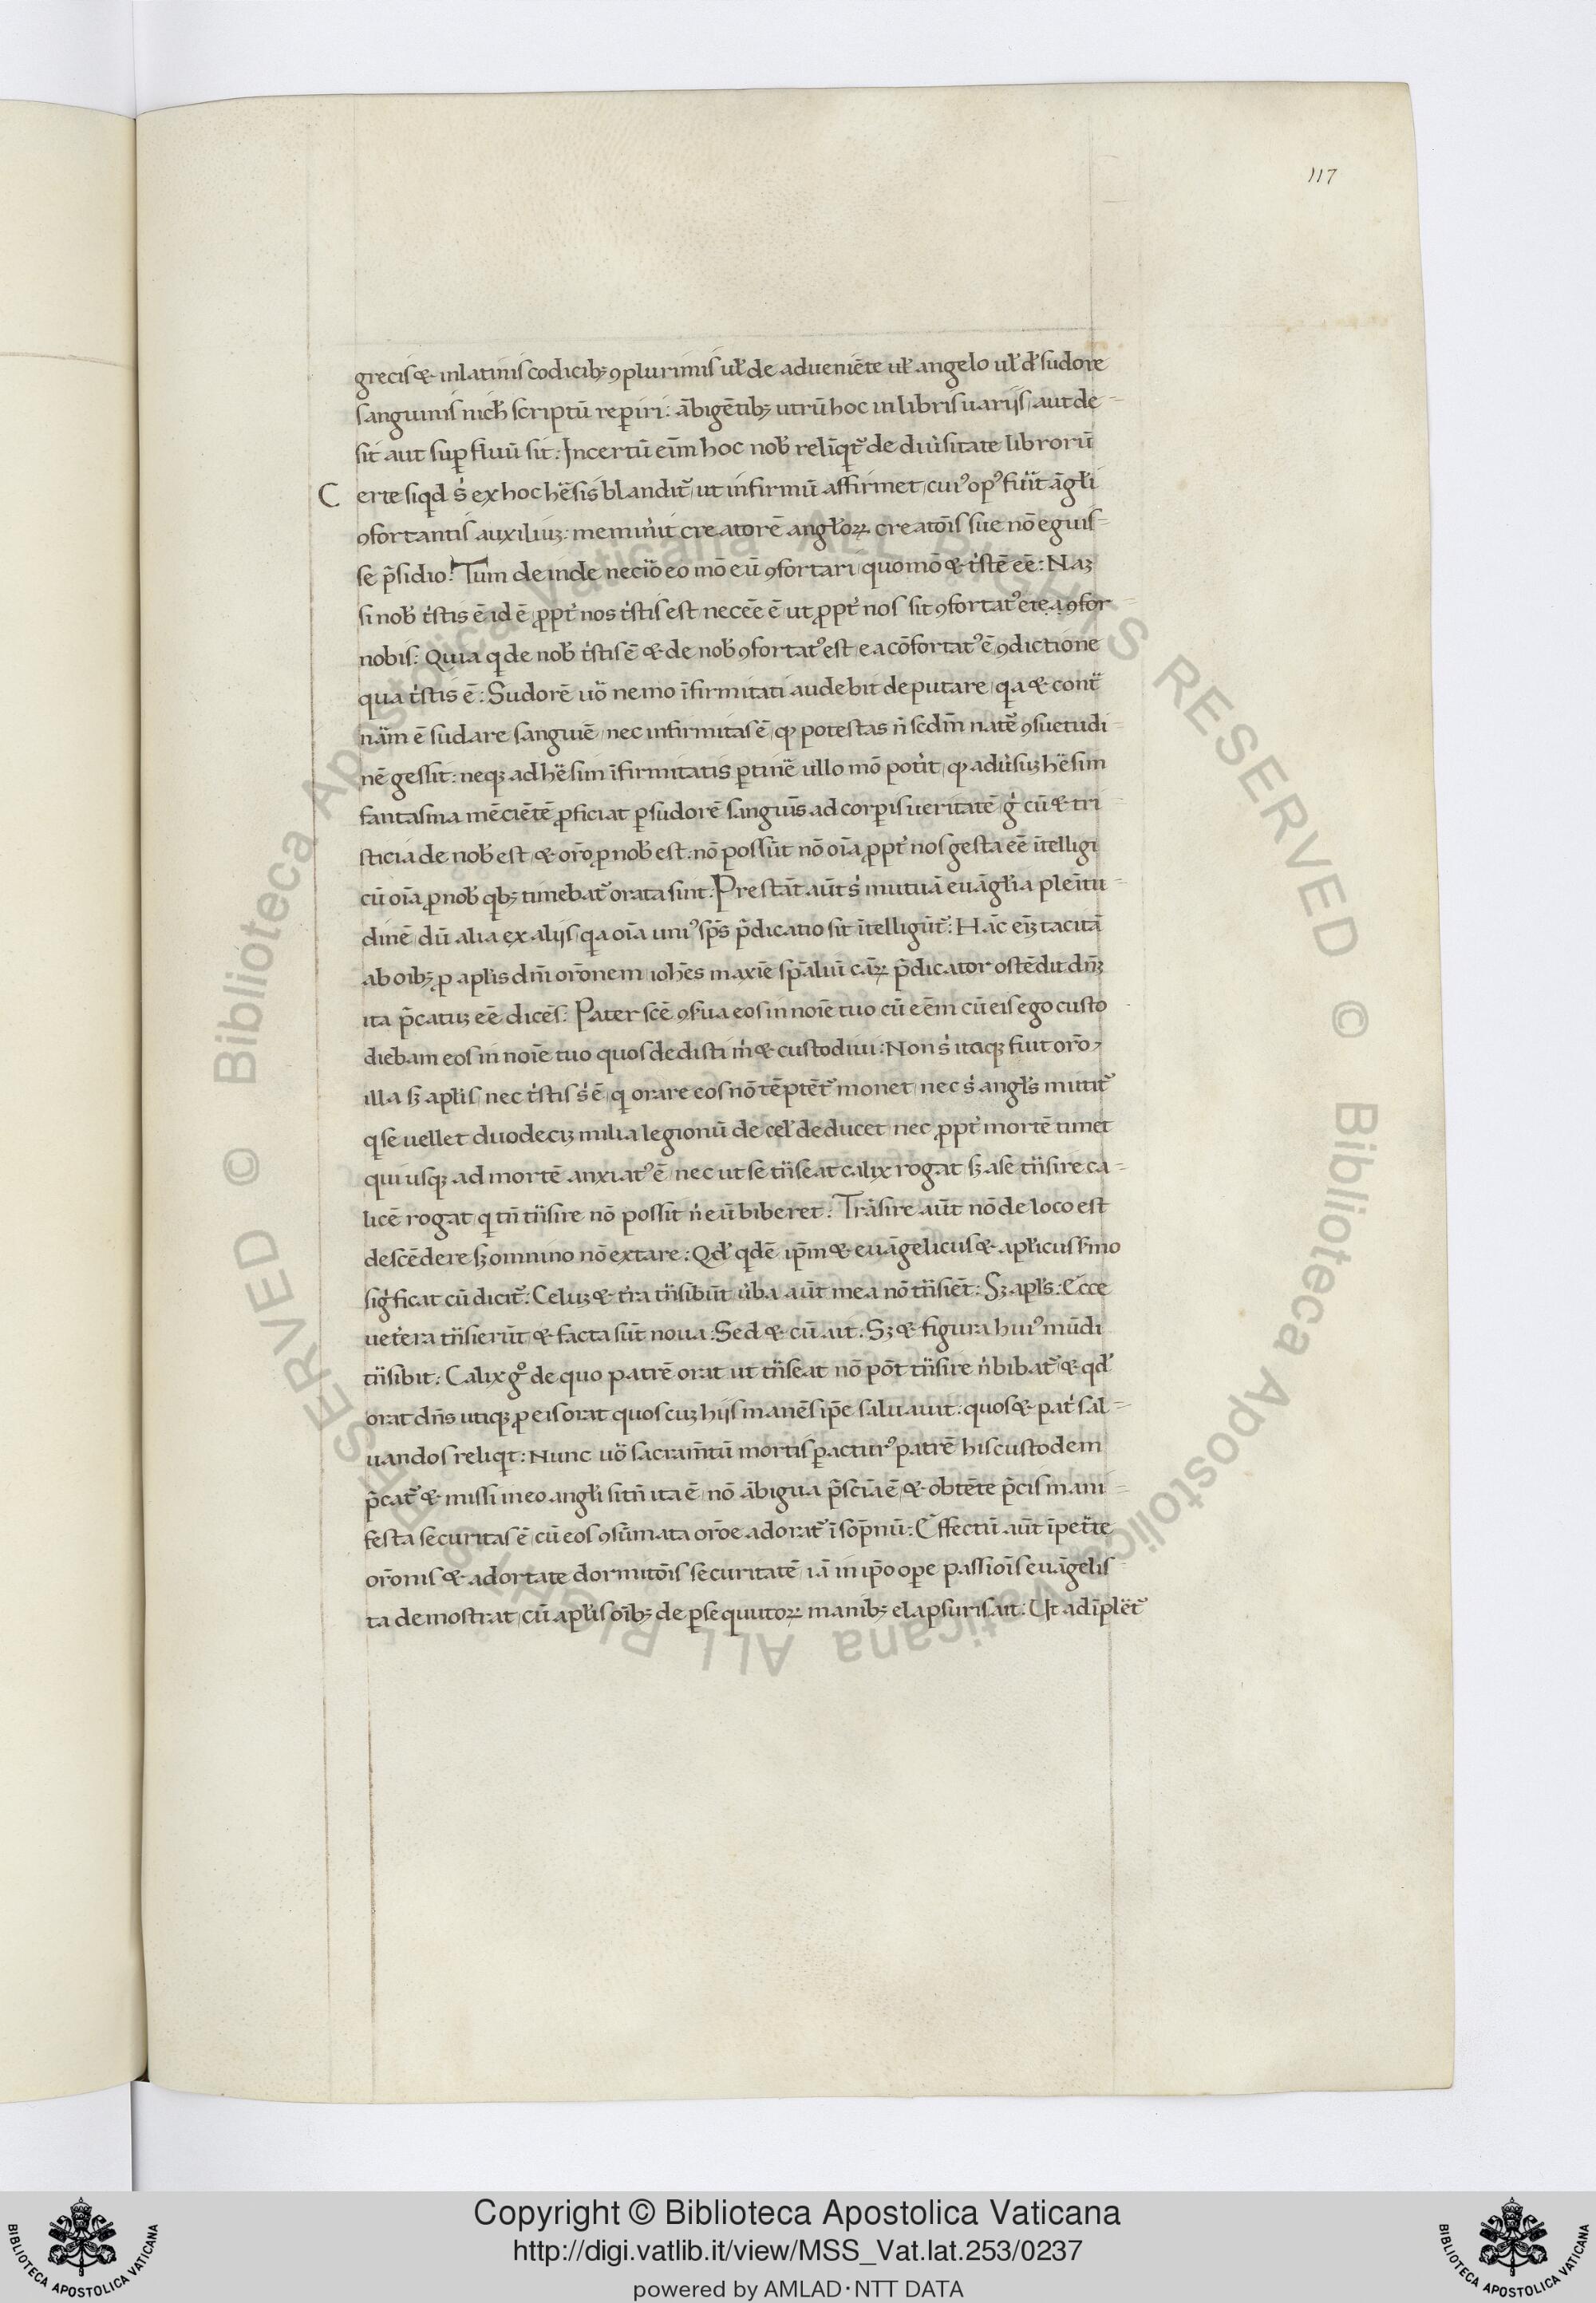 117
grecis & in latinis codicibꝫ ꝯplurimis ul̓ de adueniẽte ul̓ angelo ul̓ d̓ sudore
sanguinis nich̓ scriptũ repiri: ãbigẽtibꝫ utrũ hoc in libris uarijs aut de-
sit aut sup̱fluũ sit: Incertũ eĩm hoc nob̓ relĩqt̃ de diũsitate librorũ
C erte siqd s̓ ex hoc hẽsis blandit̃ ut infirmũ affirmet cui⁹ op⁹ fu̾it ãgl̓i
ꝯfortantis auxiliuꝫ: memin̓it creatorẽ angl̓oꝝ creatõis sue nõ eguis-
se p̃sidio: Tum deinde necio̾ eo mõ eũ ꝯfortari quo mõ & t̓stẽ eẽ: Naꝫ
si nob̓ t̓stis ẽ id ẽ ꝓpt̓ nos t̓stis est necẽe ẽ ut ꝓpt̓ nos sit ꝯfortat⁹
nobis: Quia q de nob̓ t̓stis ẽ & de nob̓ ꝯfortat⁹ est ea cõfortat⁹ ẽ ꝯdictione
qua t̓stis ẽ: Sudorẽ uo̾ nemo ĩfirmitati audebit deputare qa & cont̾
nãm ẽ sudare sanguiẽ nec infirmitas ẽ qͻ potestas ñ scdm̃ natẽ ꝯsuetudi-
nẽ gessit: neqꝫ ad hẽsim ĩfirmitatis ꝑtinẽ ullo mõ pot̓it qͻ adũsuꝫ hẽsim
fantasma mẽciẽtẽ ꝓficiat ꝑ sudorẽ sanguĩs ad corꝑis ueritatẽ g̓ cũ & tri-
sticia de nob̓ est & or̃o ꝓ nob̓ est: nõ possũt nõ oĩa ꝓpt̓ nos gesta eẽ ĩtelligi
cũ oĩa ꝓ nob̓ qbꝫ timebat̃ orata sint: Prestãt aũt s̓ mutuã euãgl̓ia pleĩtu-
dinẽ dũ alia ex alijs qa oĩa uni⁹ sp̃s p̃dicatio sit ĩtelligũt̃: Hãc eiꝫ tacitã
ab oibꝫ ꝓ apl̓is dñi or̃onem ioh̃es maxĩe sp̃aliũ cãꝝ p̃dicator ostẽdit dñꝫ
ita p̃catuꝫ eẽ dicẽs: Pater scẽ ꝯs̓ua eos in noĩe tuo cũ eẽm cũ eis ego custo
diebam eos in noĩe tuo quos dedisti m̓ & custodiui: Non s̓ itaqꝫ fuit or̃o
illa sꝫ apl̓is nec t̓stis s̓ ẽ q orare eos nõ tẽptẽt̃ monet nec s̓ angl̓s mitit̃
q se uellet duodeciꝫ milia legionũ de cel̓ deducet nec ꝓpt̓ mortẽ timet
qui usqꝫ ad mortẽ anxiat⁹ ẽ nec ut se tñseat calix rogat sꝫ a se tñsire ca-
licẽ rogat q tñ tñsire nõ possit ñ eũ biberet: Trãsire aũt nõ de loco est
descẽdere sꝫ omnino nõ extare: Qd̓ qdẽ ip̃m & euãgelicus & apl̓icus s̓mo
sig̓ficat cũ dicit̃: Celuꝫ & t̓ra tñsibũt ũba aũt mea nõ tñsiẽt: Sꝫ apl̓s: Ecce
uet̓era tñsierũt & facta sũt noua: Sed & cũ ait: Sꝫ & figura hui⁹ mũdi
tñsibit: Calix gͦ de quo patrẽ orat ut tñseat nõ põt tñsire ñ bibat̃ & qd̓
orat dñs utiqꝫ ꝓ eis orat quos cuꝫ hijs manẽs ip̃e saluauit: quos & pat̓ sal-
uandos reliqt: Nunc uo̾ sacram̃tũ mortis ꝑactur⁹ patrẽ his custodem
p̃cat̃ & missi in eo angl̓i sitñ ita ẽ nõ ãbigua p̃sciã ẽ & obtẽte p̃cis mani-
festa securitas ẽ cũ eos ꝯsũmata or̃oe adorat̃ ĩ sop̃nũ: Effectũ aũt ĩpet̃te
or̃onis & adortate dormitõis securitatẽ iã in ip̃o oꝑe passiõis euãgelis-
ta demostrat cũ apl̓is oĩbꝫ de ꝑsequutoꝝ manibꝫ elapsuris ait: Ut adĩplẽt̃
Copyright © Biblioteca Apostolica Vaticana
http://digi.vatlib.it/view/MSS_Vat.lat.253/0237
powered by AMLAD·NTT DATA
BIBLIOTECA APOSTOLICA VATICANA
BIBLIOTECA APOSTOLICA VATICANA
© Biblioteca Apostolica Vaticana ALL RIGHTS RESERVED © Biblioteca Apostolica Vaticana ALL RIGHTS RESERVED